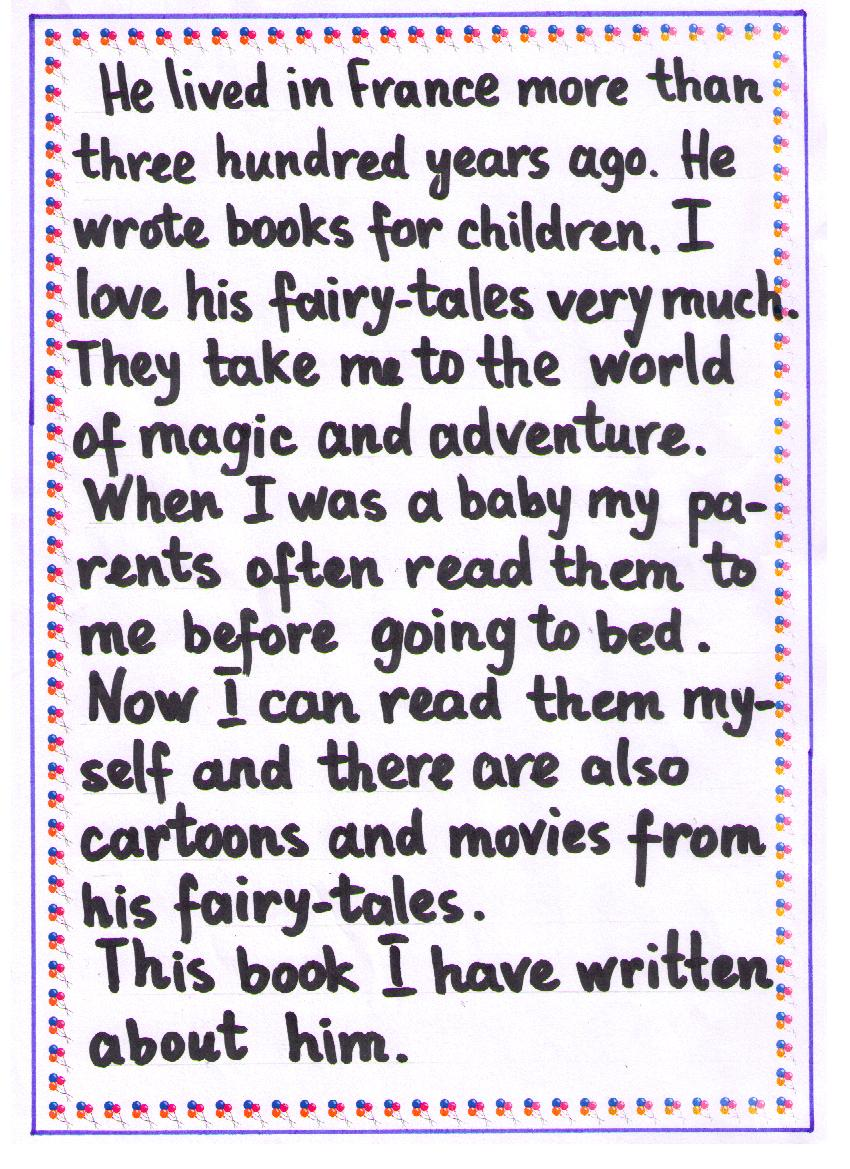 He lived in France more than
three hundred years ago. He
wrote books for children. I
love his fairy-tales very much.
They take me to the world
of magic and adventure.
When I was a baby my pa-
rents often read them to
me before going to bed.
Now I can read them my-
self and there are also
cartoons and movies from
his fairy-tales.
This book I have written
about him.